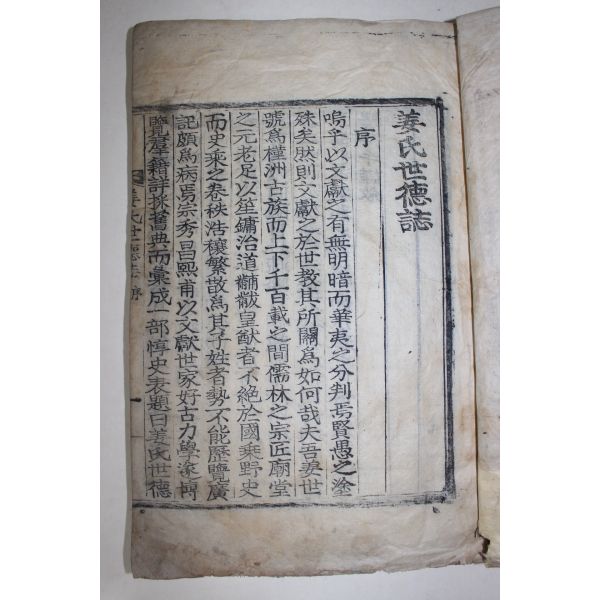 姜氏世德誌
序
嗚乎以文獻之有無明暗而華夷之分判焉賢愚之塗
殊矣然則文獻之於世敎其所關爲如何哉夫吾姜世
號爲槿洲古族而上下千百載之間儒林之宗匠廟堂
之元老足以笙鏞治道黼黻皇猷者不絶於國乘野史
而史乘之卷秩浩穰繁散爲其子姓者勢不能歷覽廣
記頗爲病焉宗秀昌熙甫以文獻世家好古力學深
覽群籍詳採舊典而彙成一部惇史表題曰姜氏世德
姜氏世德誌 序 一